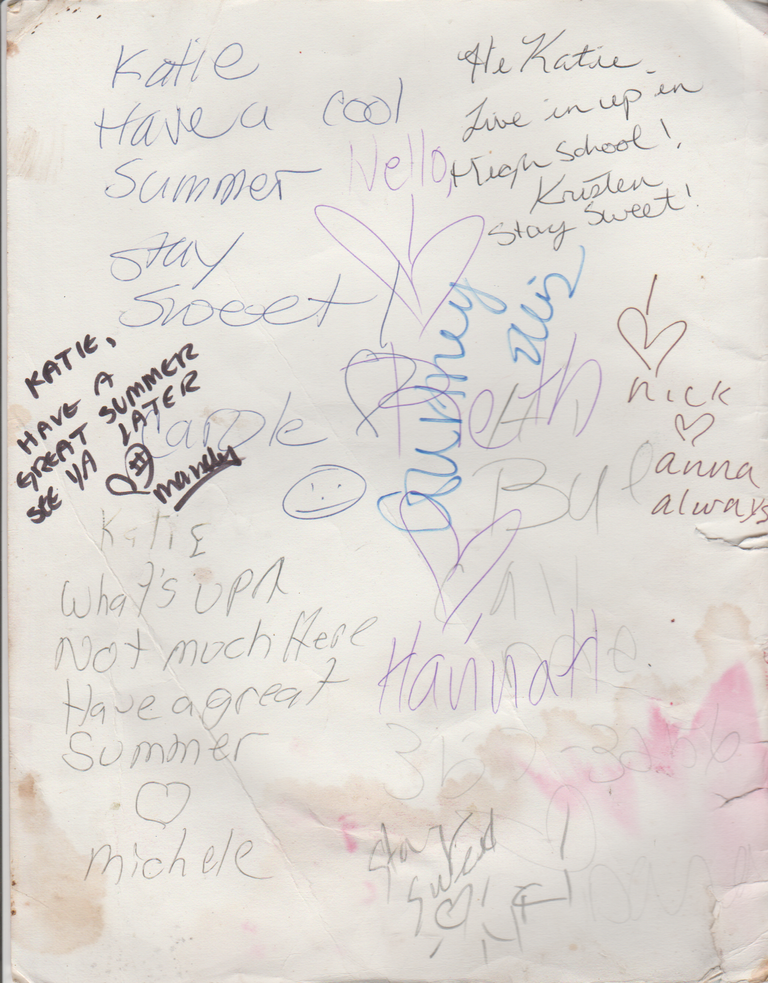 Katie
Have a cool
Summer
Stay
Sweet!
Carole
He Katie
Live in up in
High School!
Kristen
Stay Sweet!
Hello,
Beth
Courtney
KATIE,
HAVE A
GREAT SUMMER
SEE YA LATER
mandy
nick
anna
always
Katie
What's up
Not much Here
Have a great
Summer
michele
Call
Hannah
Stay
Sweet